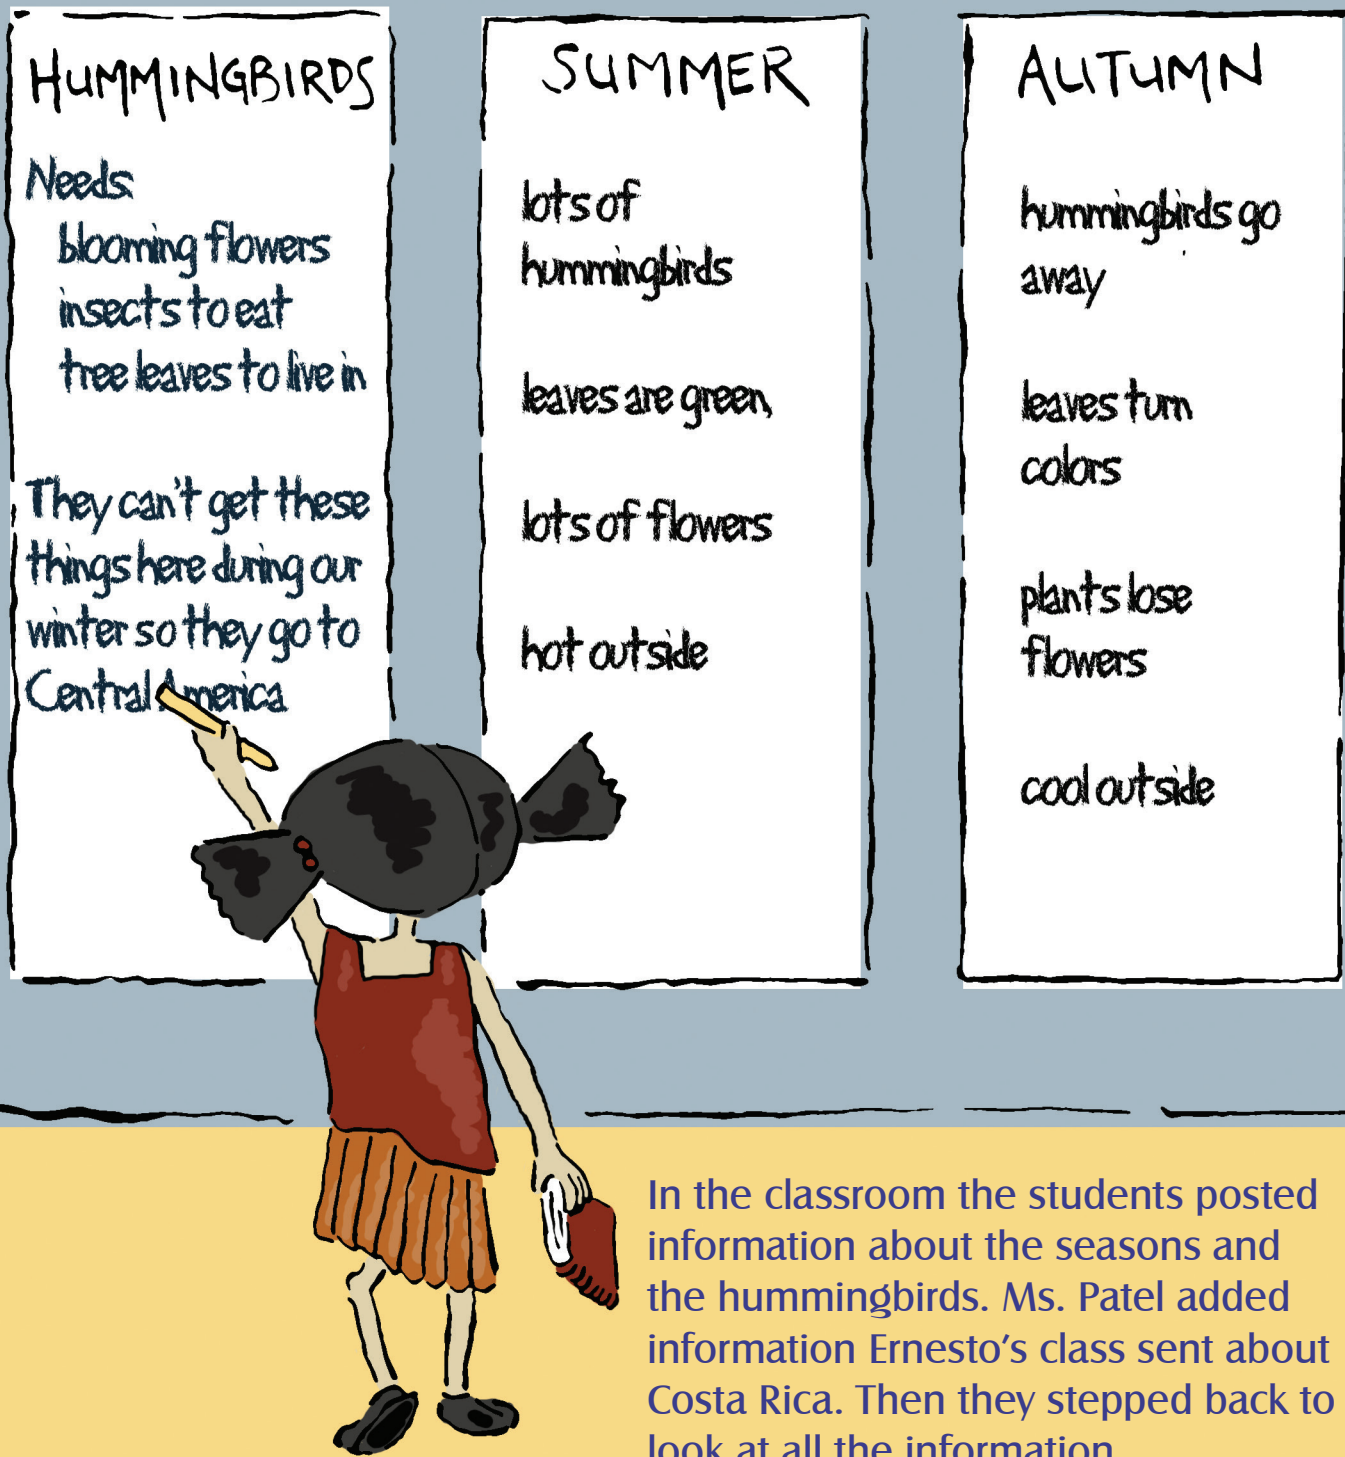 HUMMINGBIRDS
Needs
blooming flowers
insects to eat
tree leaves to live in
They can't get these
things here during our
winter so they go to
Central America
SUMMER
lots of
hummingbirds
leaves are green,
lots of flowers
hot outside
AUTUMN
hummingbirds go
away
leaves turn
colors
plants lose
flowers
cool outside
In the classroom the students posted
information about the seasons and
the hummingbirds. Ms. Patel added
information Ernesto's class sent about
Costa Rica. Then they stepped back to
look at all the information